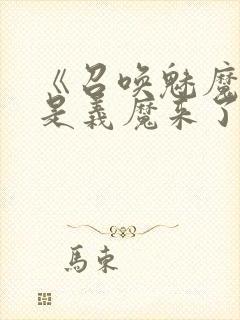 《召唤魅魔
是義魔来了
馬束